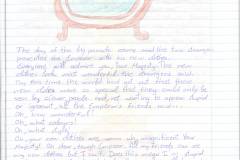 The day of the big parade came and the two swindlers
provided the Emperor with his new clothes.
Everyone will admire you, your Majesty! The new
clothes look most wonderful the swindlers said.
This time the world had got out that these
new clothes were so special that they could only be
seen by clever people and not wanting to appear stupid
or ignorant, all the Emperor's friends said...
Oh, how wonderful!
Oh, what colours!
Oh, what style!
Oh, your new clothes are
Majesty! Oh dear, thought Emperor. All my friends can see
my new clothes but I can't. Does this mean I'm stupid